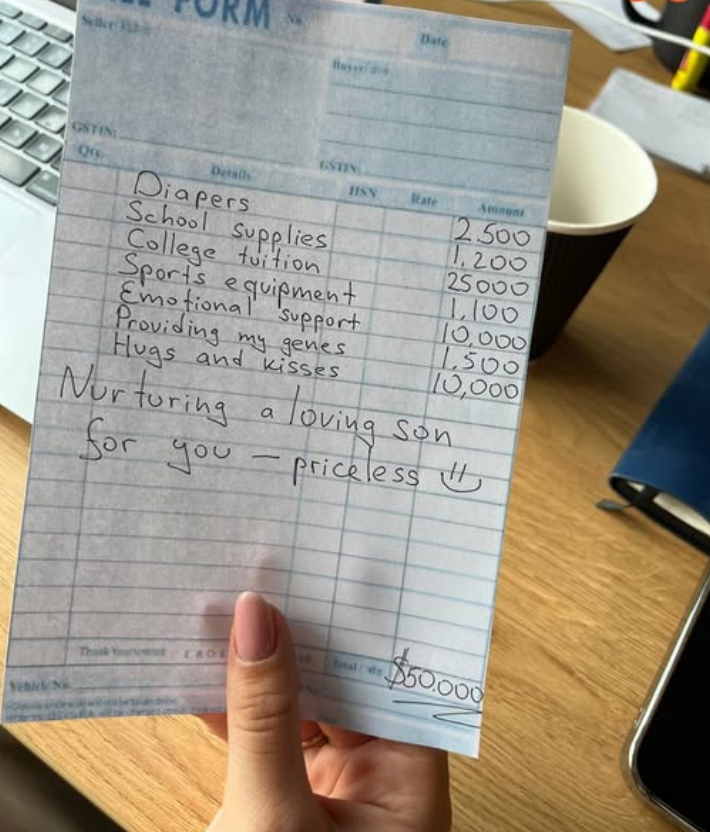 FORM No.
Date
GSTIN:
GSTIN:
Qty. Details HSN Rate Amount
Diapers 2.500
School supplies 1,200
College tuition 25000
Sports equipment 1,100
Emotional support 10,000
Providing my genes 1.500
Hugs and kisses 10,000
Nurturing a loving son
for you – priceless
Thank You
Total $50.000
Vehicle No.